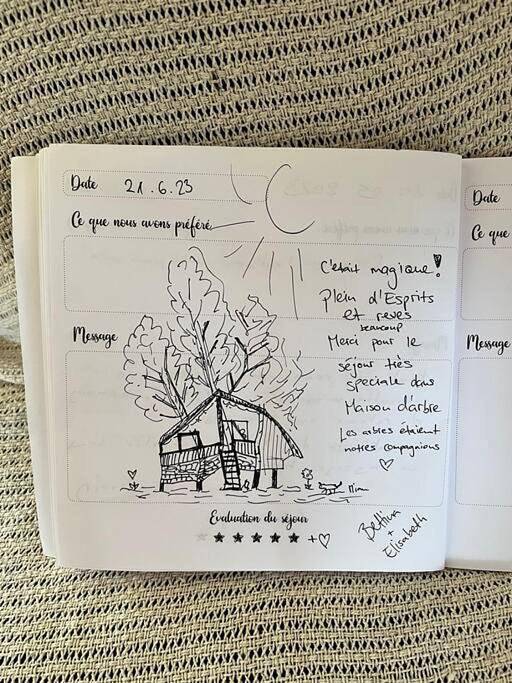 Date 21.6.23
Ce que nous avons préféré
C'était magique!
Plein d'Esprits
et reves
beaucoup
Merci pour le
séjour très
speciale dans
Maison d'arbre
Les arbres étaient
notres compagnions
Message
Evaluation du séjour
+
Bettina
+
Elisabeth
Date
Ce que
Message